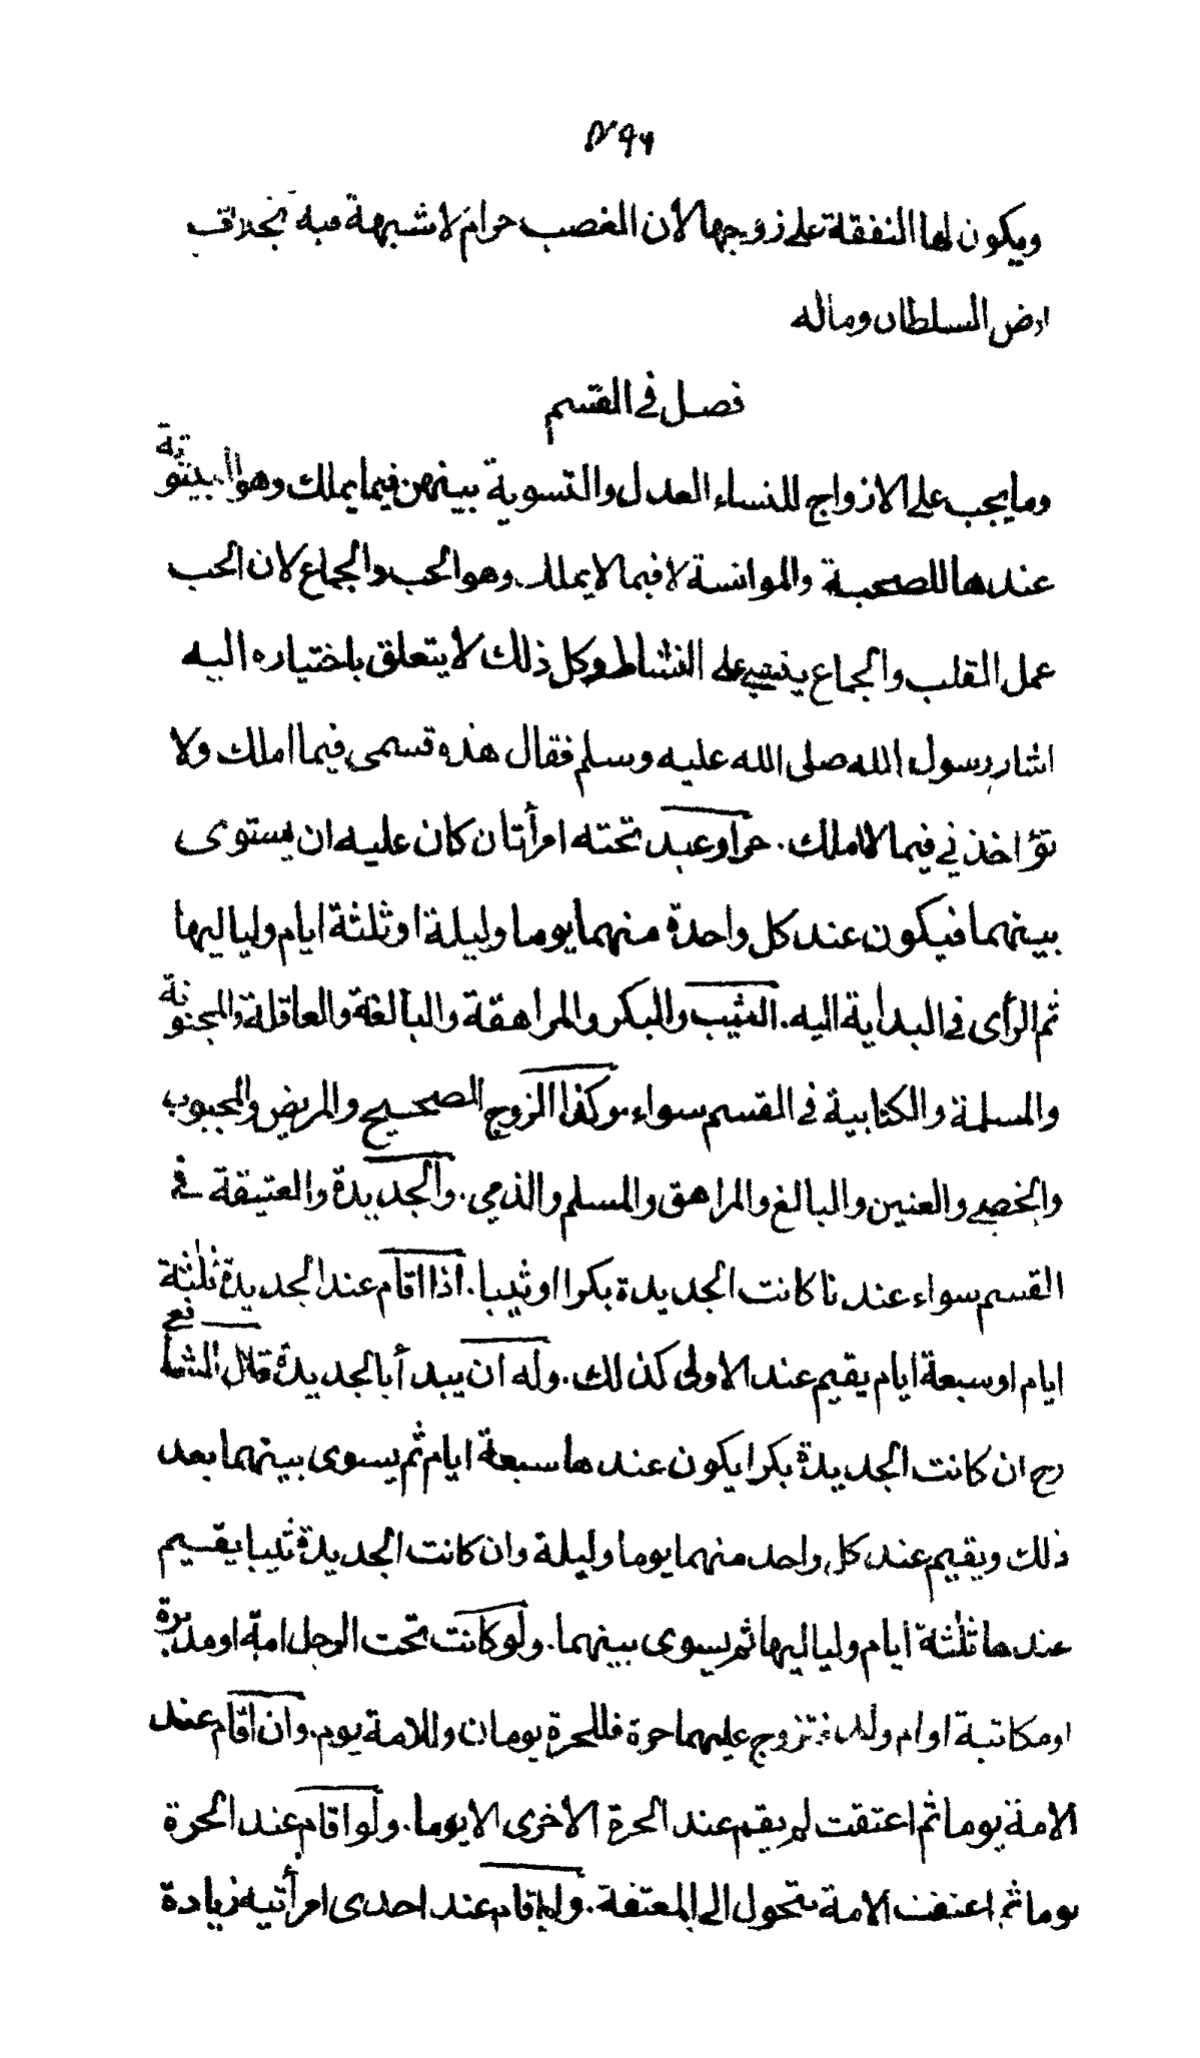 ۴۹۶
ويكون لها النفقة على زوجها لان الغصب حرام لا شبهة فيه بخلاف
ارض السلطان وماله
فصل في القسم
وما يجب على الازواج للنساء العدل والتسوية بينهن فيما يملك وهو البيتوتة
عندها للصحبة والموانسة لا فيما لا يملك وهو الحب والجماع لان الحب
عمل القلب والجماع ينبني على النشاط وكل ذلك لا يتعلق باختياره اليه
اشار رسول الله صلى الله عليه وسلم فقال هذه قسمى فيما املك ولا
تؤاخذني فيما لا املك . حر او عبد تحته امرأتان كان عليه ان يستوى
بينهما فيكون عند كل واحدة منهما يوما وليلة او ثلثة ايام ولياليها
ثم الرأى في البداية اليه . الثيب والبكر والمراهقة والبالغة والعاقلة والمجنونة
والمسلمة والكتابية في القسم سواء وكذا الزوج الصحيح والمريض والمجبوب
والخصي والعنين والبالغ والمراهق والمسلم والذمي . والجديدة والعتيقة في
القسم سواء عندنا كانت الجديدة بكرا او ثيبا . اذا اقام عند الجديدة ثلثة
ايام او سبعة ايام يقيم عند الاولى كذلك . وله ان يبدأ بالجديدة قال الشافع
رح ان كانت الجديدة بكرا يكون عندها سبعة ايام ثم يسوى بينهما بعد
ذلك ويقيم عند كل واحد منهما يوما وليلة وان كانت الجديدة ثيبا يقسيم
عندها ثلثة ايام ولياليها ثم يسوى بينهما . ولو كانت تحت الرجل امة او مدبرة
او مكاتبة او ام ولد فتزوج عليهما حرة فللحرة يومان وللامة يوم . وان اقام عند
الامة يوما ثم اعتقت لم يقم عند الحرة الاخرى الا يوما . ولو اقام عند الحرة
يوما ثم اعتقت الامة يتحول الى المعتقة . ولو اقام عند احدى امرأتيه زيادة